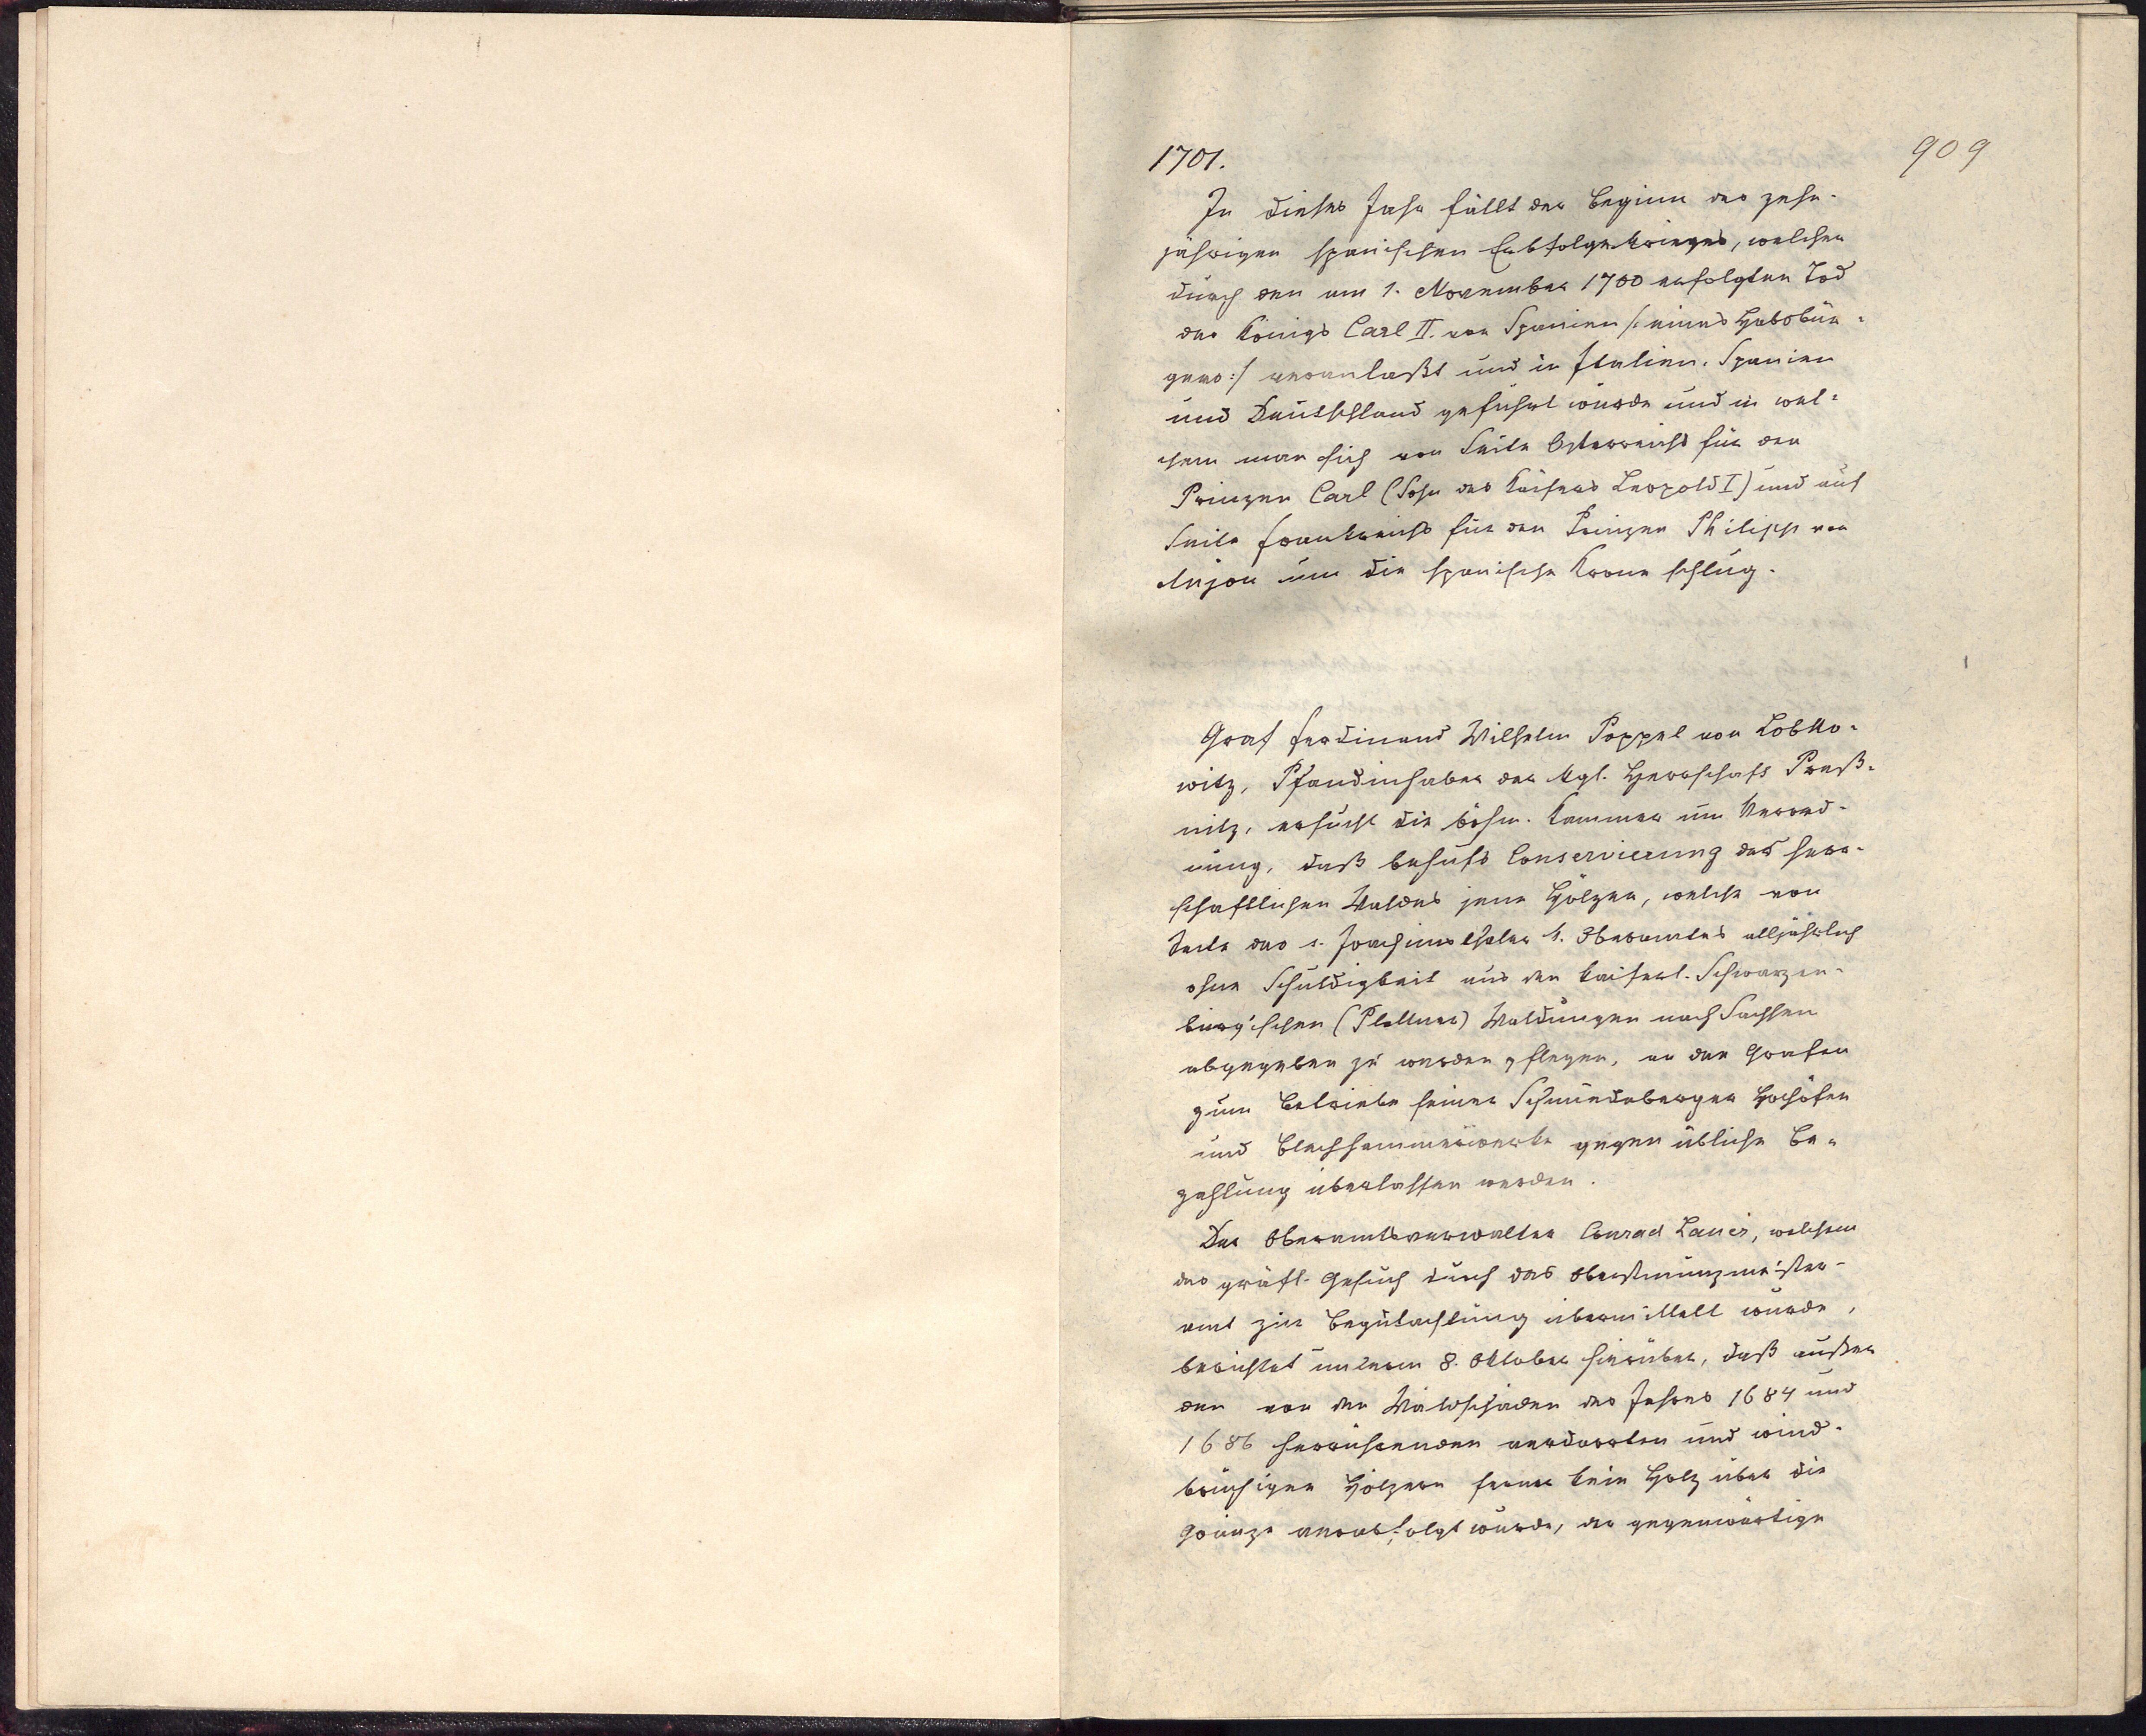 909
1701.
In dieses Jahr fällt der Beginn des zehn-
jährigen spanischen Erbfolgekrieges, welcher
durch den am 1. November 1700 erfolgten Tod
des Königs Carl II. von Spanien /: eines Habsbur-
gers :/ veranlaßt und in Italien, Spanien
und Deutschland geführt wurde und in wel-
chem man sich von Seite Österreichs für den
Prinzen Carl (Sohn des Kaisers Leopold I) und auf
Seite Frankreichs für den Prinzen Philipp von
Anjou um die spanische Krone schlug.
Graf Ferdinand Wilhelm Poppel von Lobko-
witz, Pfandinhaber der kgl. Herrschaft Preß-
nitz, ersucht die böhm. Kammer um Verord-
nung, daß behufs Conservierung des herr-
schaftlichen Waldes jene Hölzer, welche von
Seite des s. Joachimsthaler k. Oberamtes alljährlich
ohne Schuldigkeit aus den kaiserl. Schwarzen-
burg'schen (Plattner) Waldungen nach Sachsen
abgegeben zu werden pflegen, an den Grafen
zum Betriebe seiner Schmiedeberger Hochöfen
und Blechhammerwerke gegen übliche Be-
zahlung überlassen werden.
Der Oberamtsverwalter Conrad Lauer, welchem
das gräfl. Gesuch durch das Oberstmünzmeister-
amt zur Begutachtung übermittelt wurde,
berichtet unterm 8. Oktober hierüber, daß außer
den von den Waldschäden des Jahres 1684 und
1686 herrührenden verdorrten und wind-
brüchigen Hölzern ferner kein Holz über die
Gränze verabfolgt wurde, der gegenwärtige